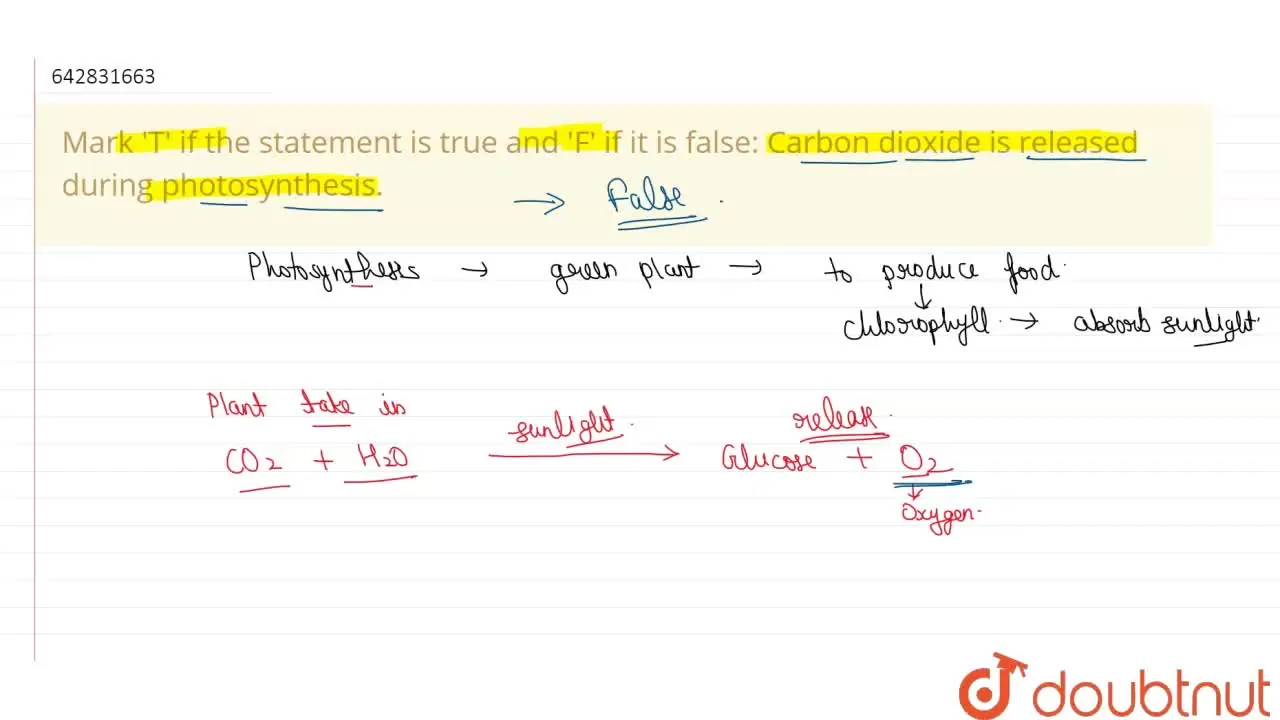 642831663
Mark 'T' if the statement is true and 'F' if it is false: Carbon dioxide is released
during photosynthesis.
→ False.
Photosynthesis → green plant → to produce food.
↓
chlorophyll. → absorb sunlight.
Plant take in
sunlight.
release.
CO2 + H2O → Glucose + O2
↓
Oxygen.
doubtnut